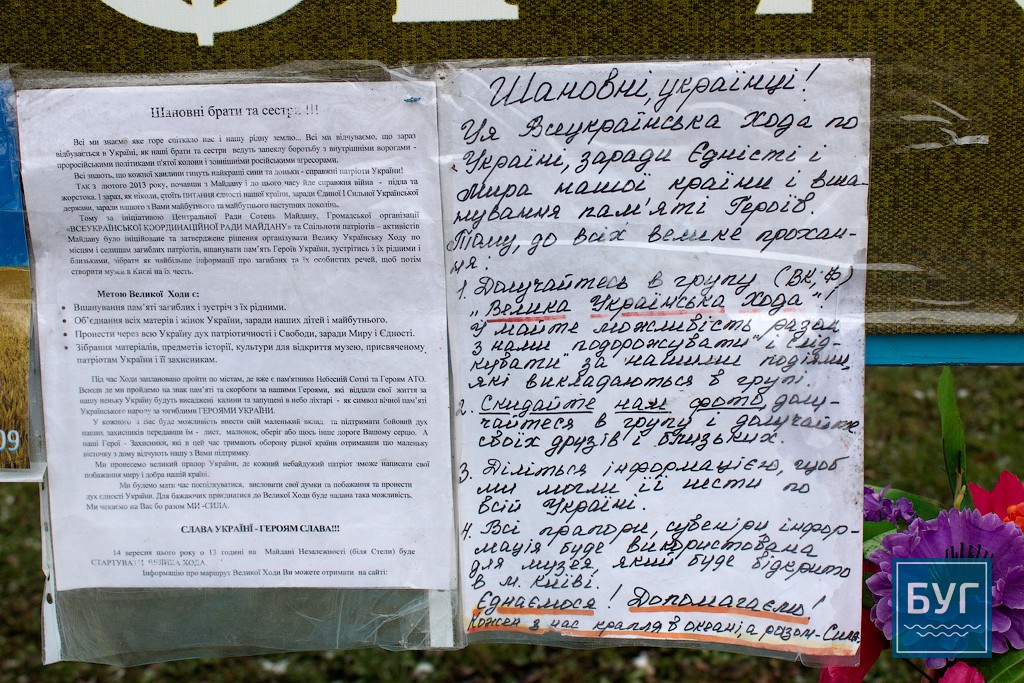 Шановні брати та сестри !!!
Всі ми знаємо яке горе спіткало нас і нашу рідну землю... Всі ми відчуваємо, що зараз
відбувається в Україні, як наші брати та сестри ведуть запеклу боротьбу з внутрішніми ворогами -
проросійськими політиками п'ятої колони і зовнішніми російськими агресорами.
Всі знають, що кожної хвилини гинуть найкращі сини та доньки - справжні патріоти України!
ТАК з лютого 2013 року, починаи з Майдану і до цього часу йде справжня війна - підла та
жорстока. І зараз, як ніколи, стоїть питання єдності нашої країни, заради Єдиної І Сильної Української
держави, заради нашого з Вами майбутнього та майбутнього наступних поколінь.
Тому за ініціативою Центральної Ради Сотень Майдану, Громадської організації
«ВСЕУКРАЇНСЬКОЇ КООРДИНАЦІЙНОЇ РАДИ МАЙДАНУ» та Спільноти патріотів - активістів
Майдану було ініційоване та затверджене рішення організувати Велику Українську Ходу по
містам і селищам загиблих патріотів, вшанувати пам'ять Героїв України, зустрітись з їх рідними і
близькими, зібрати як найбільше інформації про загиблих та їх особистих речей, щоб потім
створити музей в Києві на їх честь.
Метою Великої Ходи є:
• Вшанування пам'яті загиблих і зустріч з їх рідними.
• Об'єднання всіх матерів і жінок України, заради наших дітей і майбутнього.
• Пронести через всю Україну дух патріотичності і Свободи, заради Миру і Єдності.
• Зібрання матеріалів, предметів історії, культури для відкриття музею, присвяченому
патріотам України і її захисникам.
Під час Ходи заплановано пройти по містам, де вже є пам'ятники Небесній Сотні та Героям АТО.
Всюди де ми пройдемо на знак пам'яті та скорботи за нашими Героями, які віддали свої життя за
нашу неньку Україну будуть висаджені калини та запущені в небо ліхтарі - як символ вічної пам'яті
Українського народу за загиблими ГЕРОЯМИ УКРАЇНИ.
У кожного з Вас буде можливість внести свій маленький вклад та підтримати бойовий дух
наших захисників передавши їм - лист, малюнок, оберіг або щось інше дороге Вашому серцю. А
наші Герої - Захисники, які в цей час тримають оборону рідної країни отримавши цю маленьку
вісточку з дому відчують нашу з Вами підтримку.
Ми пронесемо великий прапор України, де кожний небайдужий патріот зможе написати свої
побажання миру і добра нашій країні.
Ми будемо мати час поспілкуватися, висловити свої думки та побажання та пронести
дух єдності України. Для бажаючих приєднатися до Великої Ходи буде надана така можливість.
Ми чекаємо на Вас бо разом МИ -СИЛА.
СЛАВА УКРАЇНІ - ГЕРОЯМ СЛАВА!!!
14 вересня цього року о 13 годині на Майдані Незалежності (біля Стели) буде
СТАРТУВАТИ ВЕЛИКА ХОДА.
Інформацію про маршрут Великої Ходи Ви можете отримати на сайті:
Шановні, українці!
Ця Всеукраїнська хода по
Україні, заради Єдністі і
мира нашої країни і вша-
нування пам'яті Героїв.
Тому, до всіх велике прохан-
ня:
1. Долучайтесь в групу (ВК, Ф)
"Велика Українська хода"!
І майте можливість разом
з нами "подорожувати" і слід-
кувати за нашими подіями,
які викладаються в групі.
2. Скидайте нам фото, долу-
чайтеся в групу і долучайте
своїх друзів і близьких.
3. Діліться інформацією, щоб
ми могли її нести по
всій Україні.
4. Всі прапори, сувеніри інфор-
мація буде використована
для музея, який буде відкрито
в м. Київі.
Єднаємося! Допомагаємо!
Кожен з нас крапля в океані, а разом - Сила.
09
БУГ